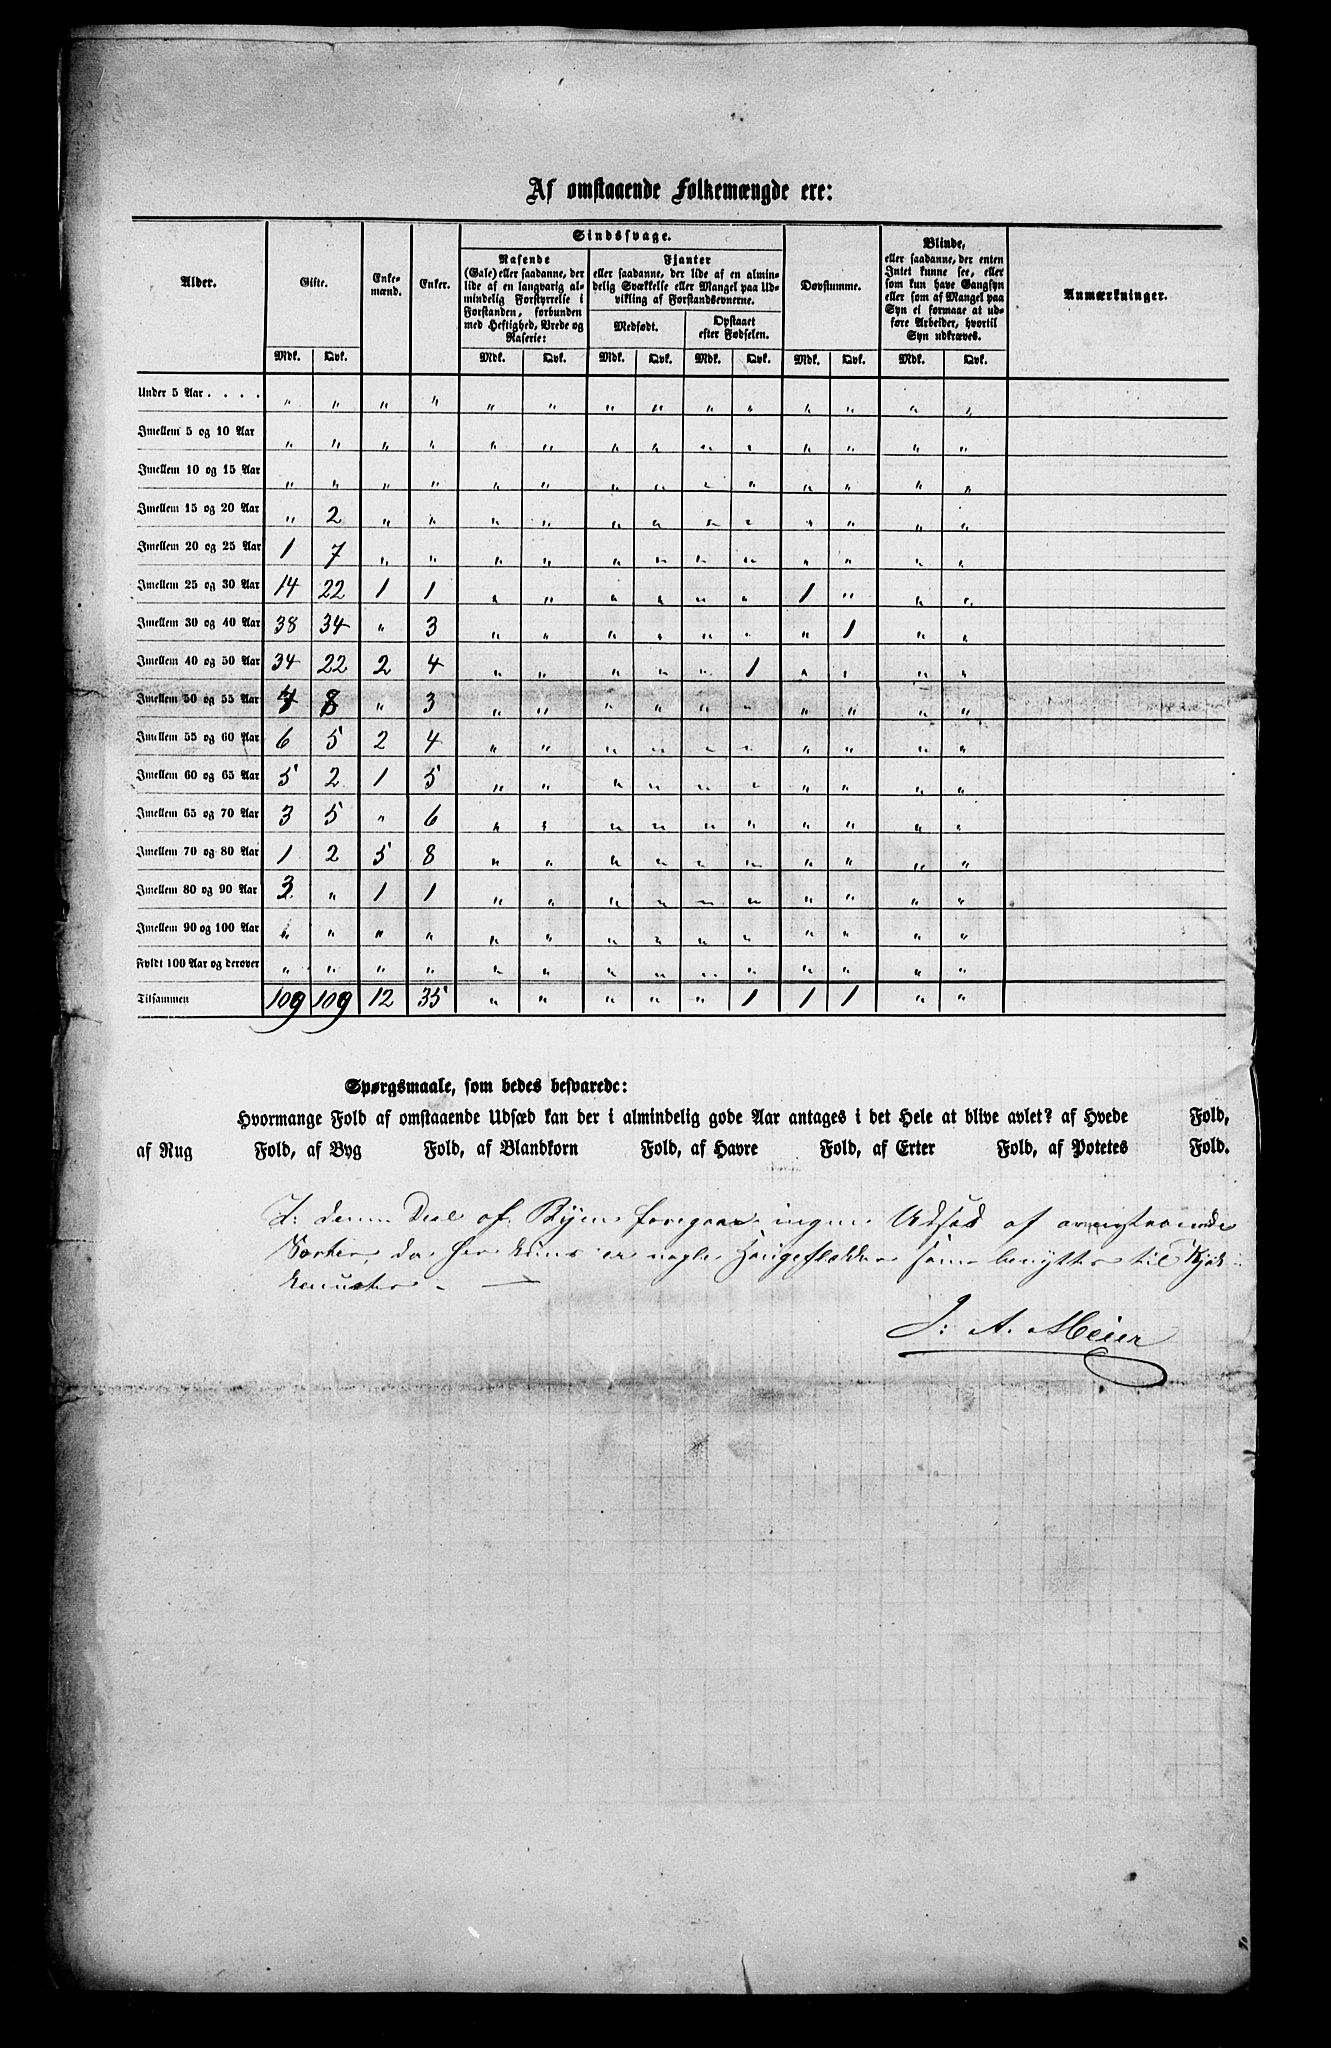 Af omstaaende Folkemængde ere:
Alder. Gifte. Enkemænd. Enker. Sindssvage. Døvstumme. Blinde, Anmærkninger.
Rasende
(Gale) eller saadanne, der
lide af en langvarig al-
mindelig Forstyrrelse i
Forstanden, forbunden
med Heftighed, Vrede og
Raserie:
Fjanter
eller saadanne, der lide af en almin-
delig Svækkelse eller Mangel paa Ud-
vikling af Forstandsevnerne.
Medfødt. Opstaaet
efter Fødselen.
eller saadanne, der enten
Intet kunne see, eller
som kun have Gangsyn
eller som af Mangel paa
Syn ei formaae at ud-
føre Arbeider, hvortil
Syn udkræves.
Mdk. Qvk. Mdk. Qvk. Mdk. Qvk. Mdk. Qvk. Mdk. Qvk. Mdk. Qvk.
Under 5 Aar . . . . " " " " " " " " " " " " " "
Imellem 5 og 10 Aar " " " " " " " " " " " " " "
Imellem 10 og 15 Aar " " " " " " " " " " " " " "
Imellem 15 og 20 Aar " 2 " " " " " " " " " " " "
Imellem 20 og 25 Aar 1 7 " " " " " " " " " " " "
Imellem 25 og 30 Aar 14 22 1 1 " " " " " " 1 " " "
Imellem 30 og 40 Aar 38 34 " 3 " " " " " " " 1 " "
Imellem 40 og 50 Aar 34 22 2 4 " " " " " 1 " " " "
Imellem 50 og 55 Aar 4 8 " 3 " " " " " " " " " "
Imellem 55 og 60 Aar 6 5 2 4 " " " " " " " " " "
Imellem 60 og 65 Aar 5 2 1 5 " " " " " " " " " "
Imellem 65 og 70 Aar 3 5 " 6 " " " " " " " " " "
Imellem 70 og 80 Aar 1 2 5 8 " " " " " " " " " "
Imellem 80 og 90 Aar 3 " 1 1 " " " " " " " " " "
Imellem 90 og 100 Aar " " " " " " " " " " " " " "
Fyldt 100 Aar og derover " " " " " " " " " " " " " "
Tilsammen 109 109 12 35 " " " " " 1 1 1 " "
Spørgsmaale, som bedes besvarede:
Hvormange Fold af omstaaende Udsæd kan der i almindelig gode Aar antages i det Hele at blive avlet? af Hvede Fold,
af Rug Fold, af Byg Fold, af Blandkorn Fold, af Havre Fold, af Erter Fold, af Potetes Fold.
I denne Deel af Byen foregaar ingen Udsæd af ovenstaaende
Sorter, da her kuns er nogle Haugeflekker som benyttes til Kjøk-
kenurter. —
J: A. Meier